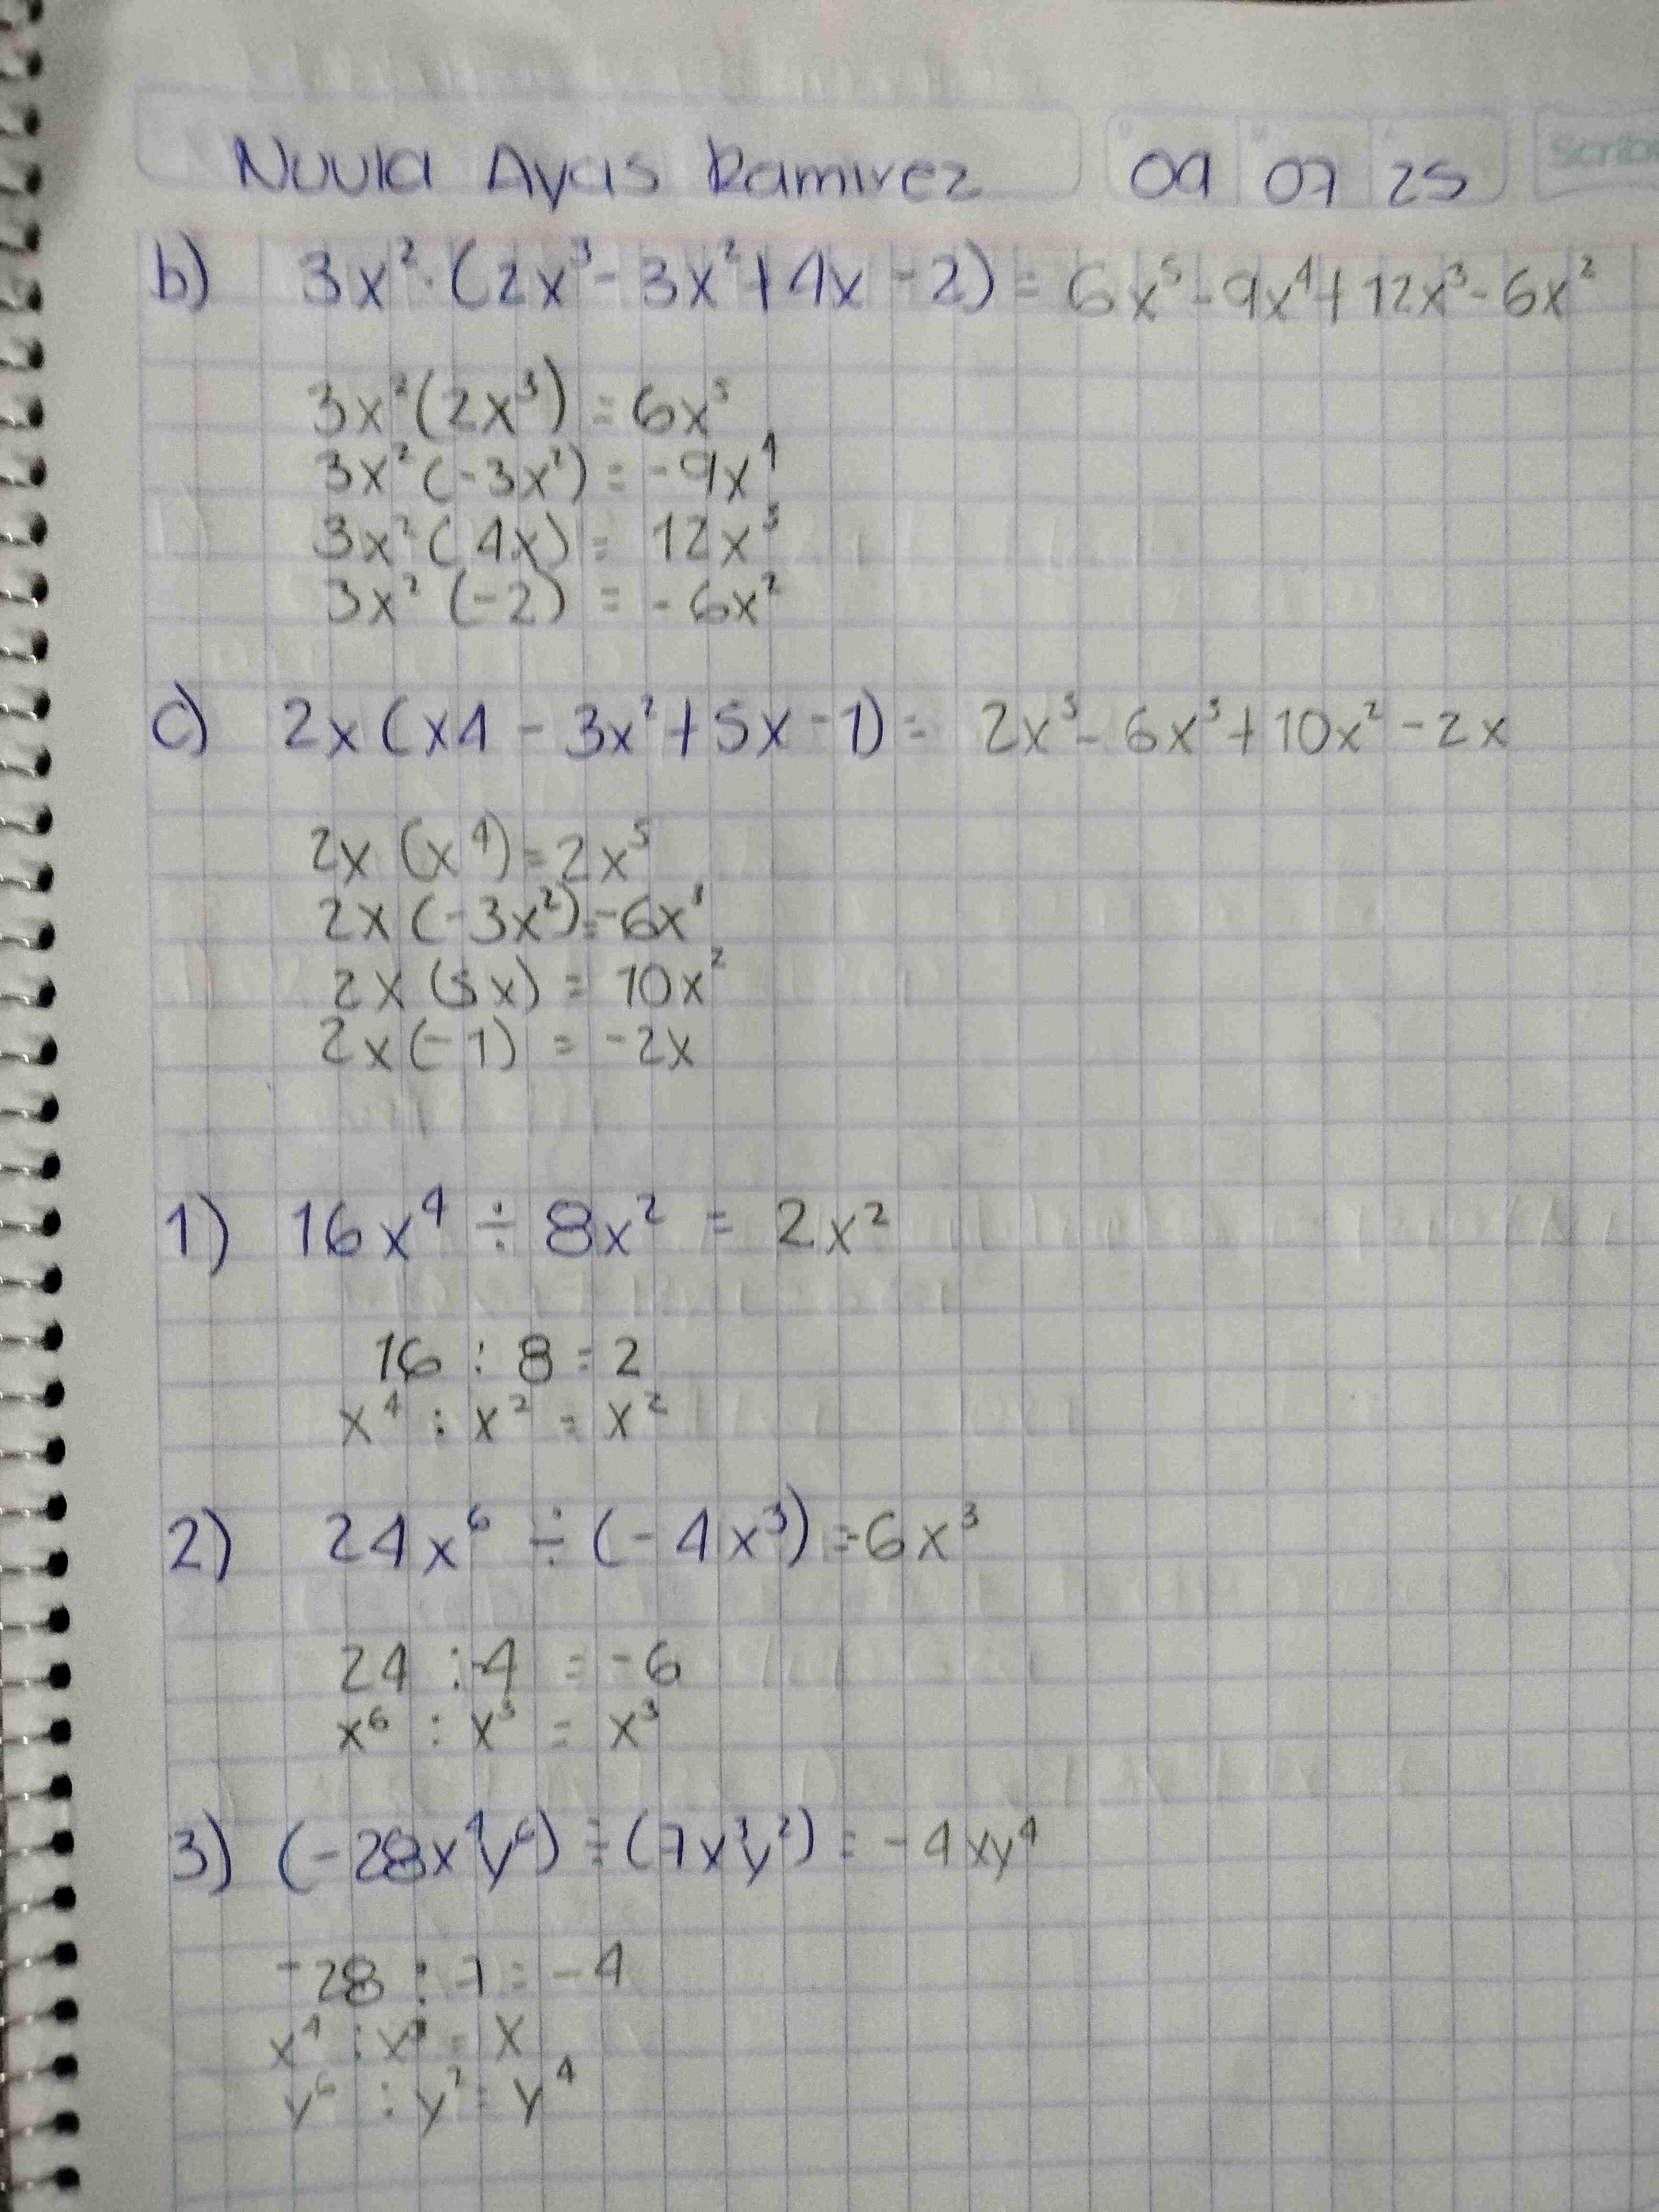 Nuula Ayas Ramirez 09 07 25
b) 3x²·(2x³-3x²+4x-2)= 6x⁵-9x⁴+12x³-6x²
3x²(2x³)=6x⁵
3x²(-3x²)=-9x⁴
3x²(4x)=12x³
3x²(-2)=-6x²
c) 2x(x4-3x²+5x-1)= 2x⁵-6x³+10x²-2x
2x(x⁴)=2x⁵
2x(-3x²)=-6x³
2x(5x)=10x²
2x(-1)=-2x
1) 16x⁴÷8x²=2x²
16:8=2
x⁴:x²=x²
2) 24x⁶÷(-4x³)=-6x³
24:-4=-6
x⁶:x³=x³
3) (-28x⁴y⁶)÷(7x³y²)=-4xy⁴
-28:7=-4
x⁴:x³=x
y⁶:y²=y⁴